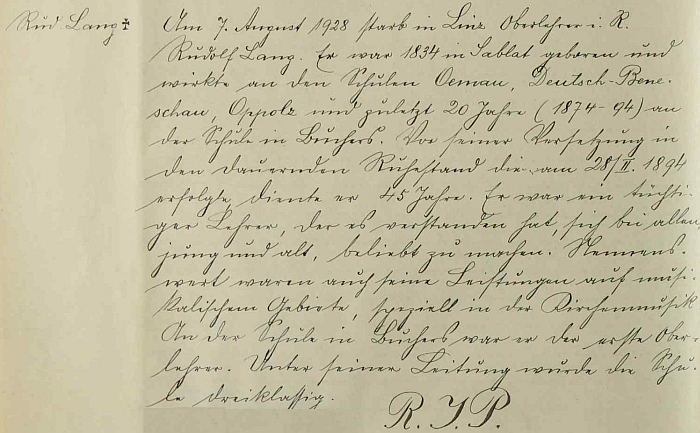 Rud. Lang ✝
Am 7. August 1928 starb in Linz Oberlehrer i. R.
Rudolf Lang. Er war 1834 in Sablat geboren und
wirkte an den Schulen Oemau, Deutsch-Bene-
schau, Oppolz und zuletzt 20 Jahre (1874-94) an
der Schule in Buchers. Vor seiner Versetzung in
den dauernden Ruhestand die am 28/II. 1894
erfolgte, diente er 45 Jahre. Er war ein tüchti-
ger Lehrer, der es verstanden hat, sich bei allen,
jung und alt, beliebt zu machen. Nennens-
wert waren auch seine Leistungen auf musi-
kalischem Gebiete, speziell in der Kirchenmusik
An der Schule in Buchers war er der erste Ober-
lehrer. Unter seiner Leitung wurde die Schu-
le dreiklassig.
R. I. P.